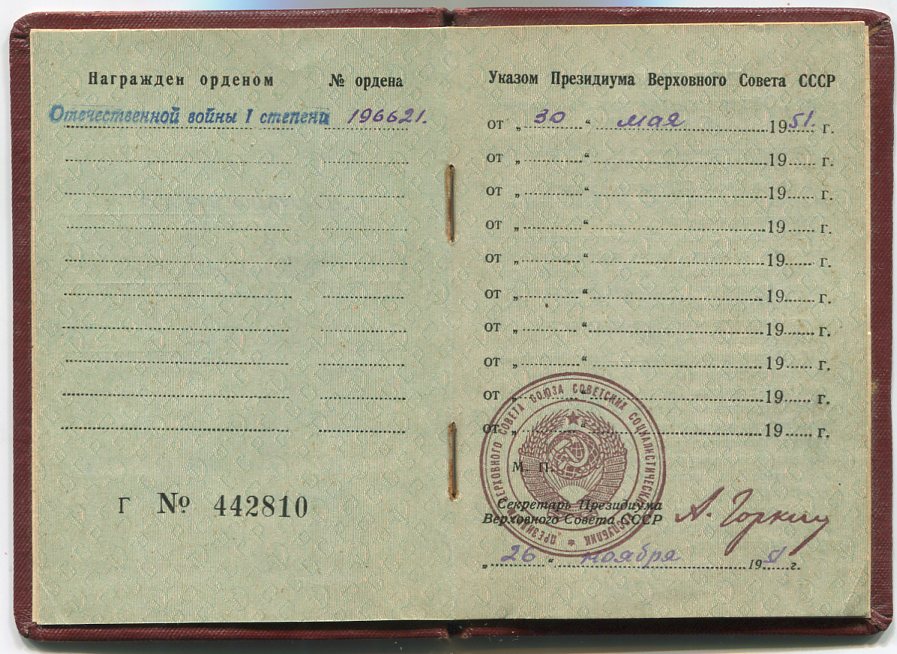 Награжден орденом № ордена
Отечественной войны I степени 196621.
Г № 442810
Указом Президиума Верховного Совета СССР
от „30“ мая 1951. г.
от „ “ 19 г.
от „ “ 19 г.
от „ “ 19 г.
от „ “ 19 г.
от „ “ 19 г.
от „ “ 19 г.
от „ “ 19 г.
от „ “ 19 г.
от „ “ 19 г.
М. П.
Секретарь Президиума
Верховного Совета СССР
А. Горкин
„26“ ноября 1951 г.
ПРЕЗИДИУМ ВЕРХОВНОГО СОВЕТА СОЮЗА СОВЕТСКИХ СОЦИАЛИСТИЧЕСКИХ РЕСПУБЛИК